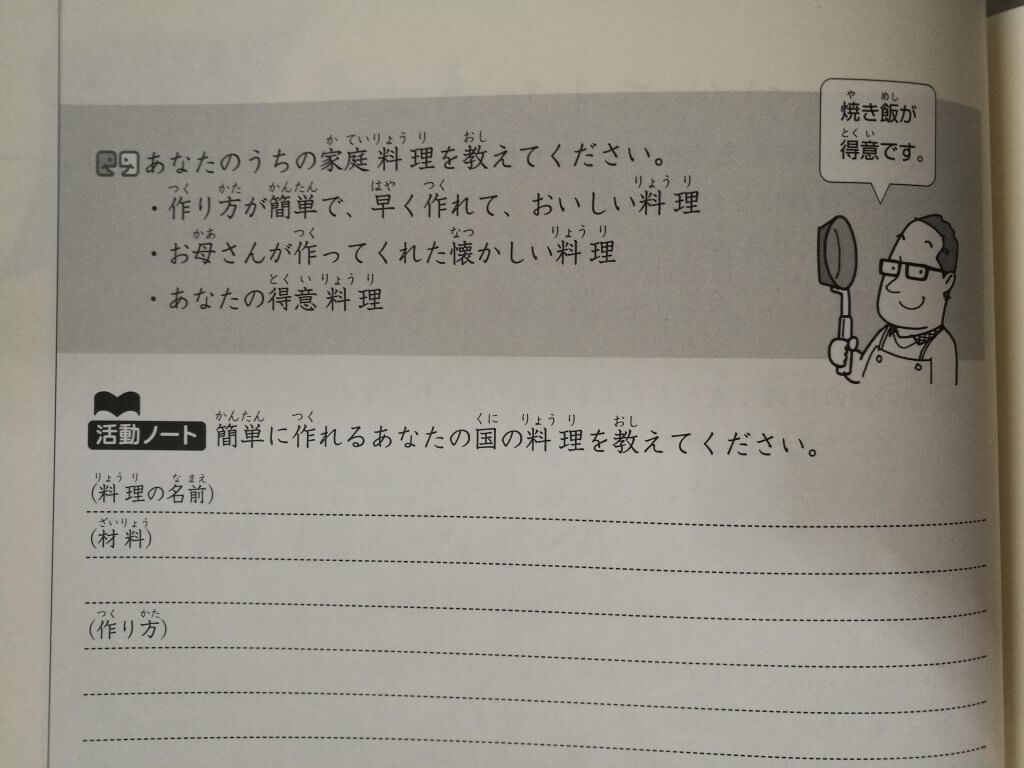 焼き飯が
得意です。
あなたのうちの家庭料理を教えてください。
・作り方が簡単で、早く作れて、おいしい料理
・お母さんが作ってくれた懐かしい料理
・あなたの得意料理
活動ノート 簡単に作れるあなたの国の料理を教えてください。
(料理の名前)
(材料)
(作り方)